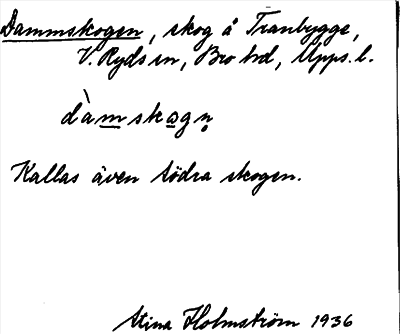 Dammskogen, skog å Tranbygge,
V. Ryds sn, Bro hd, Upps. l.
dàmskogn̥
Kallas även södra skogen.
Stina Holmström 1936